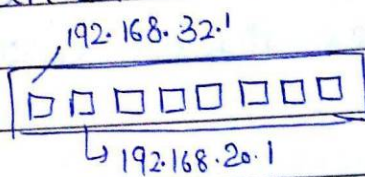 192.168.32.1
192.168.20.1